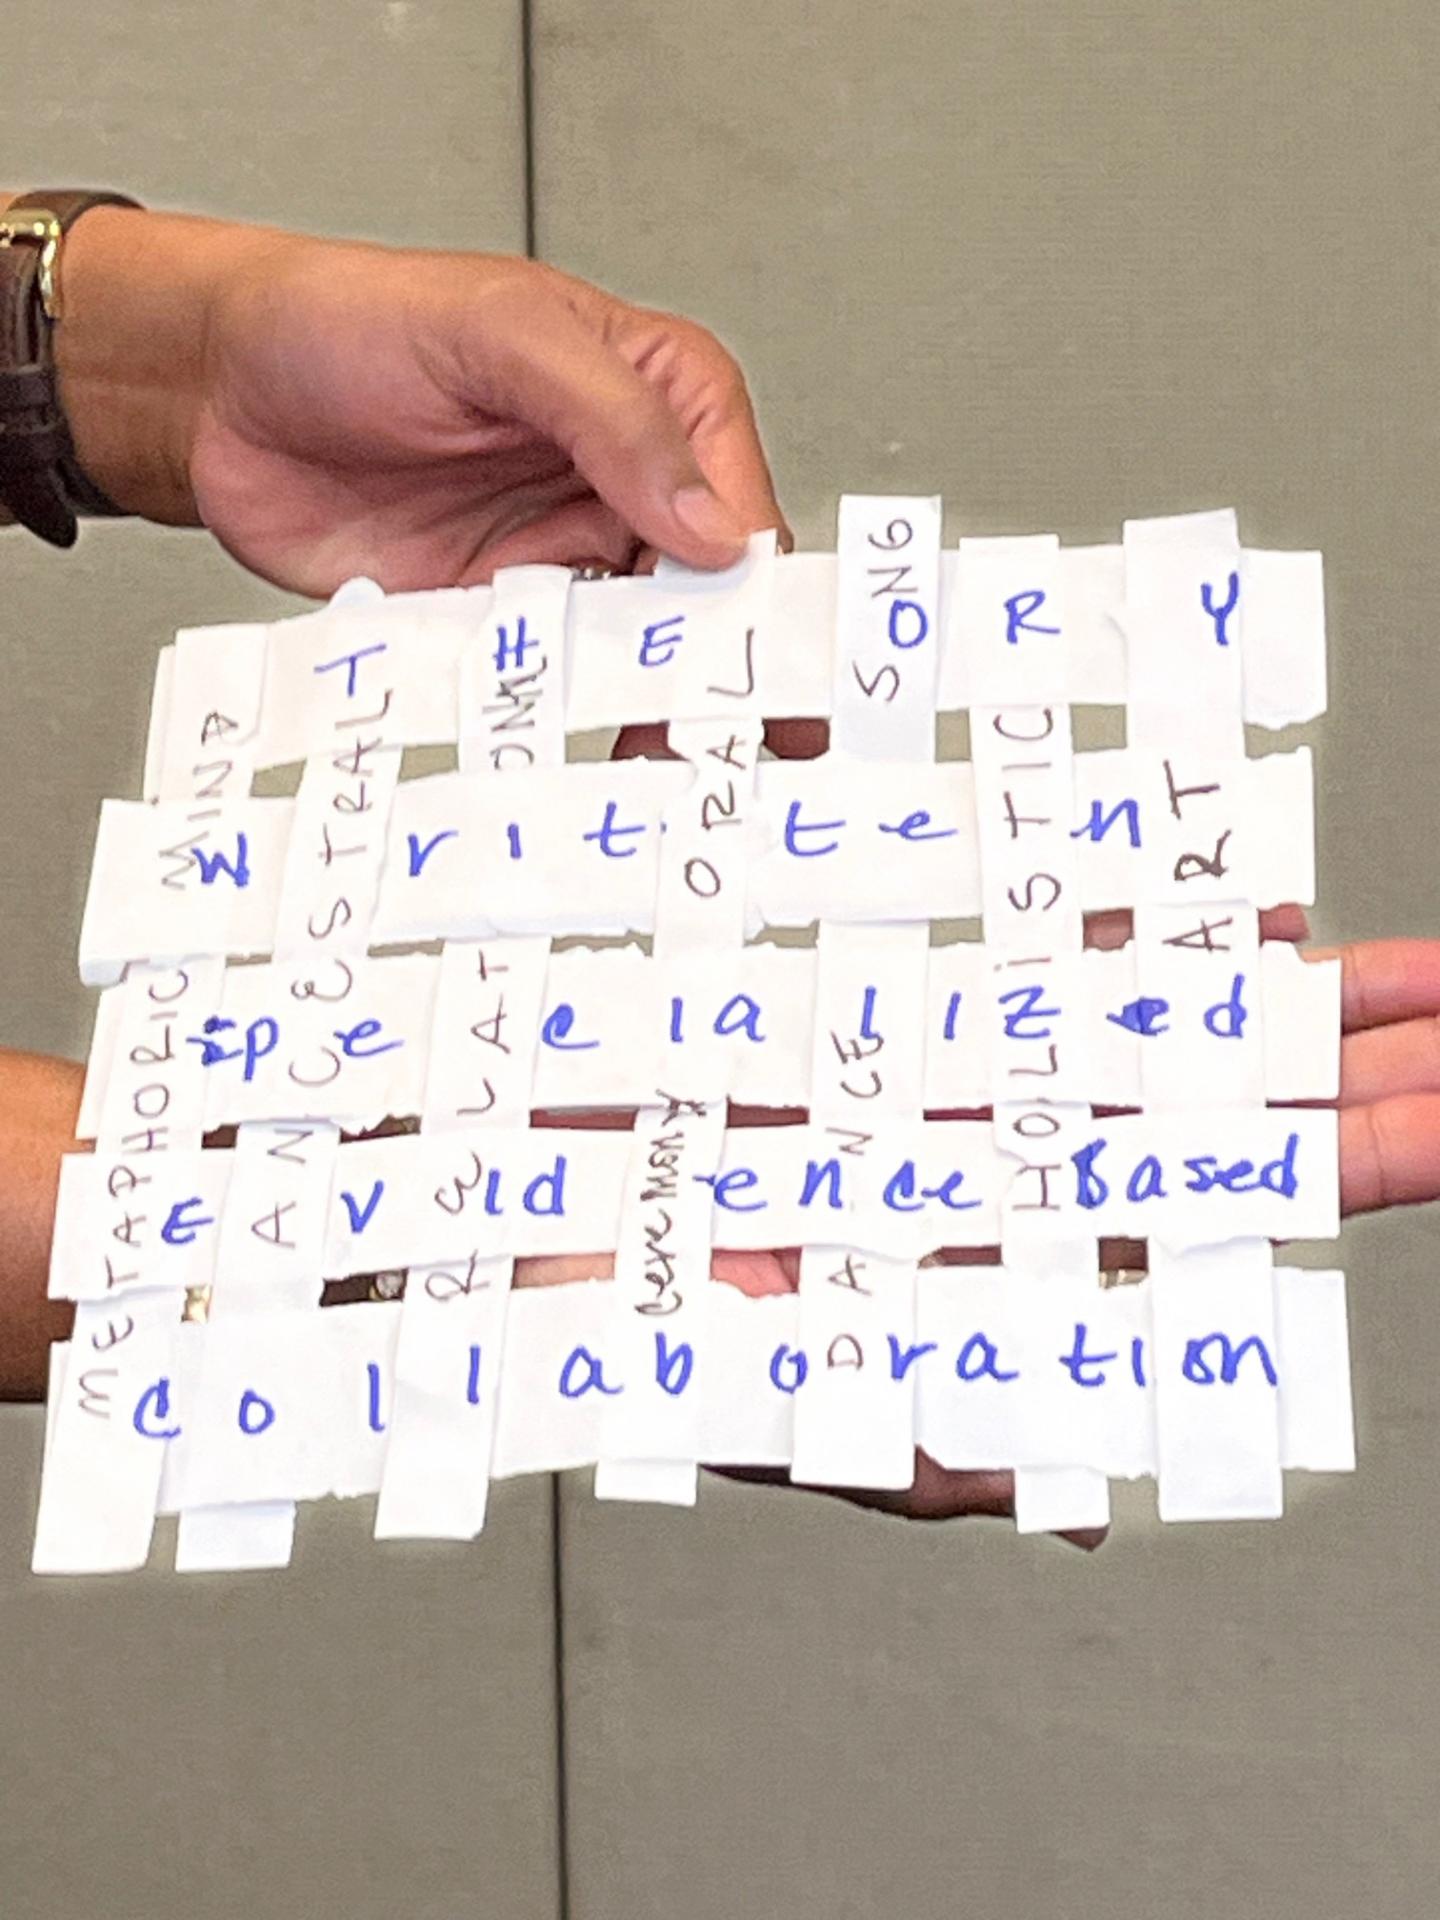 THEORY
written
specialized
Evidence Based
collaboration
METAPHORIC MIND
ANCESTRAL
ORAL
ceremony
SONG
DANCE
HOLiSTIC
ART